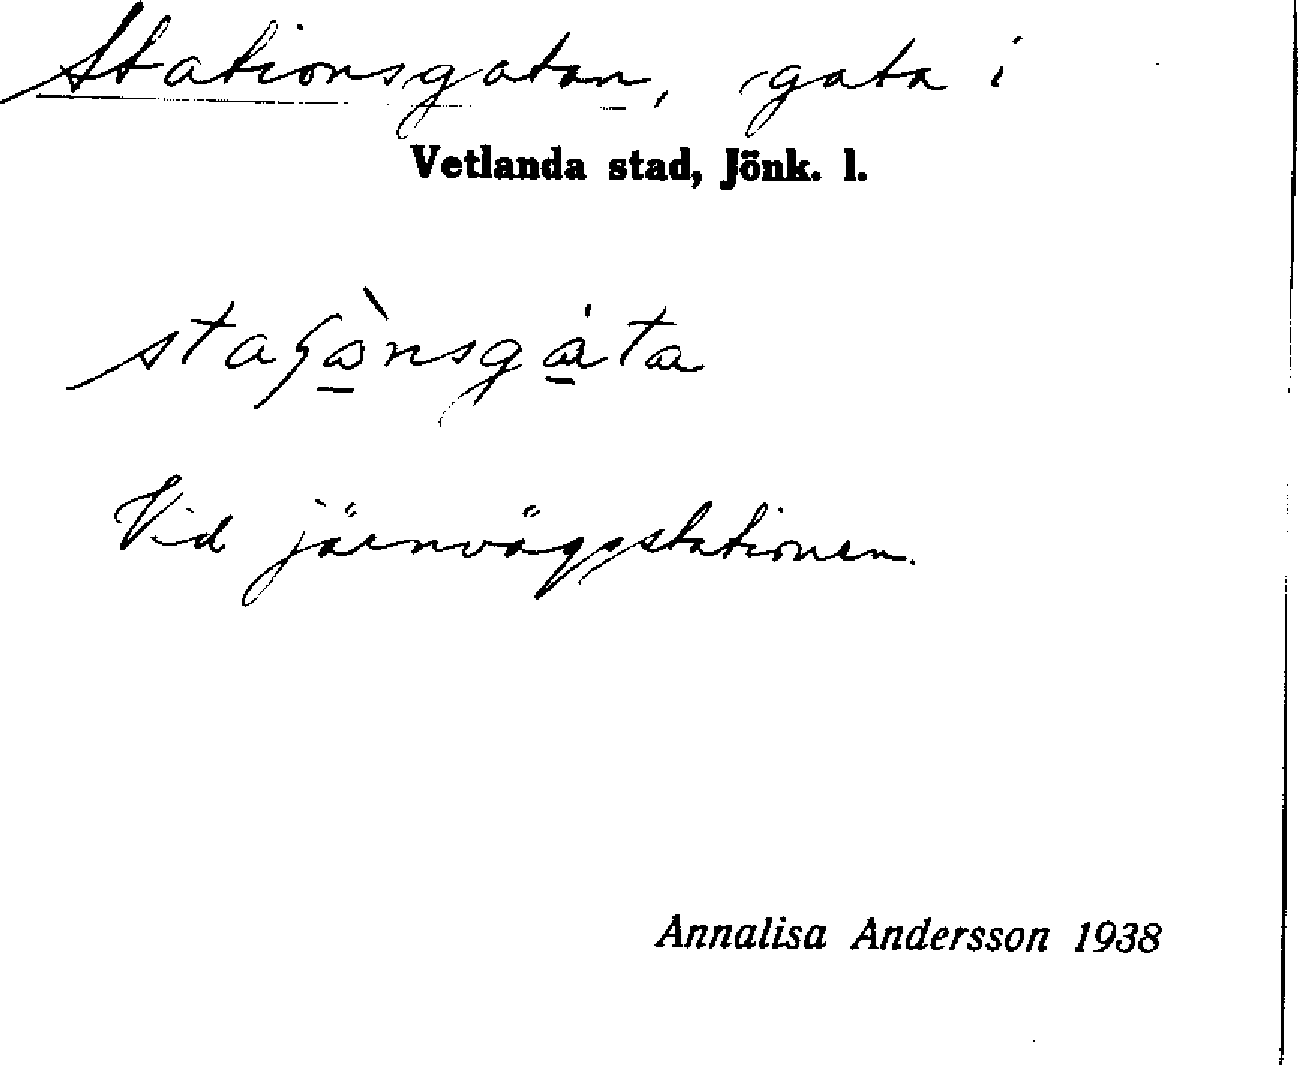 Stationsgatan, gata i
Vetlanda stad, Jönk. l.
Vid järnvägsstationen.
Annalisa Andersson 1938